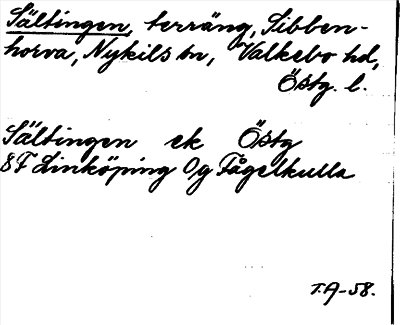 Sältingen, terräng, Sibben-
horva, Nykils sn, Valkebo hd,
Östg. l.
Sältingen ek Östg
8F Linköping Og Fågelkulla
T.A-58.